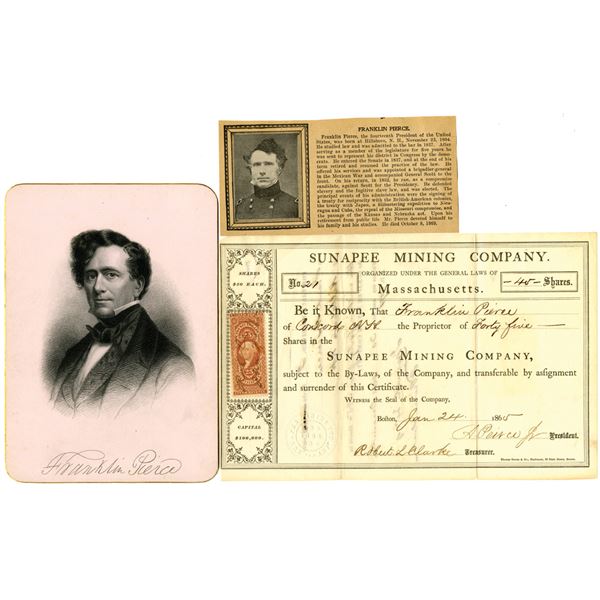 FRANKLIN PIERCE.
Franklin Pierce, the fourteenth President of the United
States, was born at Hillsboro, N. H., November 23, 1804.
He studied law and was admitted to the bar in 1827. After
serving as a member of the legislature for five years he
was sent to represent his district in Congress by the demo-
crats. He entered the Senate in 1837, and at the end of his
term retired and resumed the practice of law. He
offered his services and was appointed a brigadier-general
in the Mexican War and accompanied General Scott to the
front. On his return, in 1852, he ran, as a compromise
candidate, against Scott for the Presidency. He defended
slavery and the fugitive slave law, and was elected. The
principal events of his administration were the signing of
a treaty for reciprocity with the British-American colonies,
the treaty with Japan, a filibustering expedition to Nica-
ragua and Cuba, the repeal of the Missouri compromise, and
the passage of the Kansas and Nebraska act. Upon his
retirement from public life Mr. Pierce devoted himself to
his family and his studies. He died October 8, 1869.
Franklin Pierce
SUNAPEE MINING COMPANY.
ORGANIZED UNDER THE GENERAL LAWS OF
Massachusetts.
No. 21
-45- Shares.
SHARES
$50 EACH.
Be it Known, That Franklin Pierce
of Concord N.H. the Proprietor of Forty five
Shares in the
SUNAPEE MINING COMPANY,
subject to the By-Laws, of the Company, and transferable by assignment
and surrender of this Certificate.
WITNESS the Seal of the Company.
CAPITAL
$100,000.
Boston, Jan 24 1865
S. Peirce Jr President.
Robert L Clarke Treasurer.